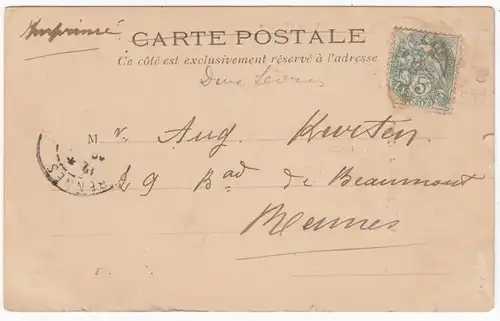 Imprimé
CARTE POSTALE
Ce côté est exclusivement réservé à l'adresse
Deux Sèvres
5c
POSTES
Mr. Aug. Kersten,
29 Bad de Beaumont
Rennes
RENNES
12